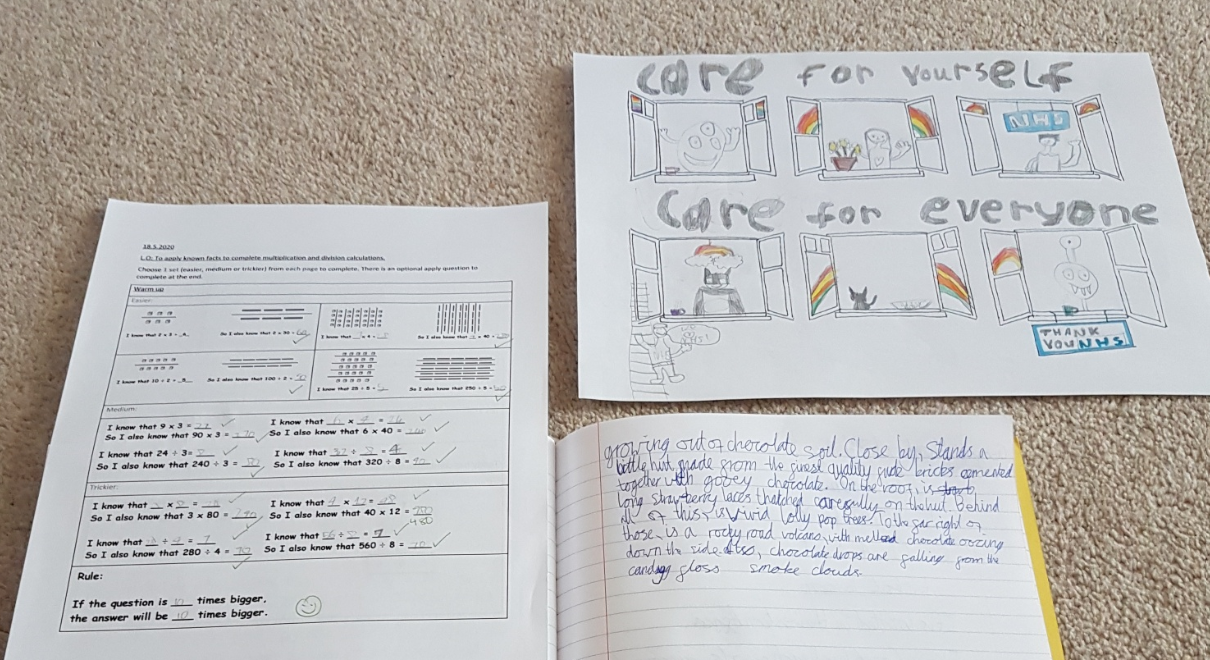 Care for yourself
NHS
Care for everyone
THANK
YOU NHS
18.5.2020
L.O: To apply known facts to complete multiplication and division calculations.
Choose 1 set (easier, medium or trickier) from each page to complete. There is an optional apply question to
complete at the end.
Warm up
Easier:
I know that 2 x 3 =
So I also know that 2 x 30 = 60
I know that x 4 =
So I also know that x 40 =
I know that 10 ÷ 2 = 5
So I also know that 100 ÷ 2 = 50
I know that 25 ÷ 5 =
So I also know that 250 ÷ 5 =
Medium:
I know that 9 x 3 = 27 I know that x = 24
So I also know that 90 x 3 = 270 So I also know that 6 x 40 =
I know that 24 ÷ 3 = 8 I know that 32 ÷ 8 = 4
So I also know that 240 ÷ 3 = 80 So I also know that 320 ÷ 8 = 40
Trickier:
I know that x = I know that x 12 = 48
So I also know that 3 x 80 = 240 So I also know that 40 x 12 =
480
I know that ÷ 4 = 7 I know that 56 ÷ = 7
So I also know that 280 ÷ 4 = 70 So I also know that 560 ÷ 8 = 70
Rule:
If the question is 10 times bigger,
the answer will be 10 times bigger.
growing out of chocolate soil. Close by, Stands a
little hut made from the finest quality fude bricks cemented
together with gooey chocolate. On the roof, is
long strawberry laces thatched carefully on the hut. Behind
all of this, is vivid lolly pop trees. To the far right of
those, is a rocky road volcano, with melted chocolate oozing
down the side. Also, chocolate drops are falling from the
floss smoke clouds.